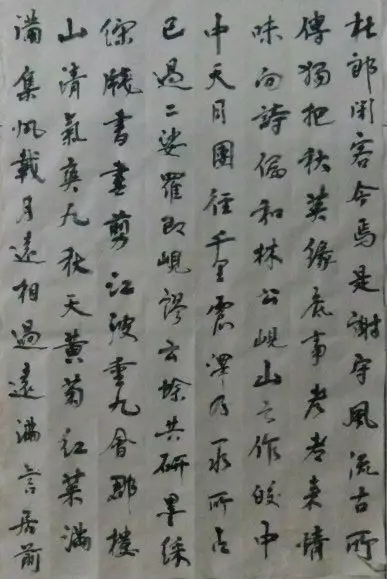 杜郎閑客今焉是謝守風流古所
傳獨把秋英緣底事老老来情
味向詩偏和林公峴山之作皎中
中天月團徑千里震澤乃一水所占
已過二娑羅即峴謬云蜍共研墨綵
綵牋書盡剪江波重九會郡樓
山清氣爽九秋天黄菊紅茱滿
滿集帆載月遠相過遠滿言居前